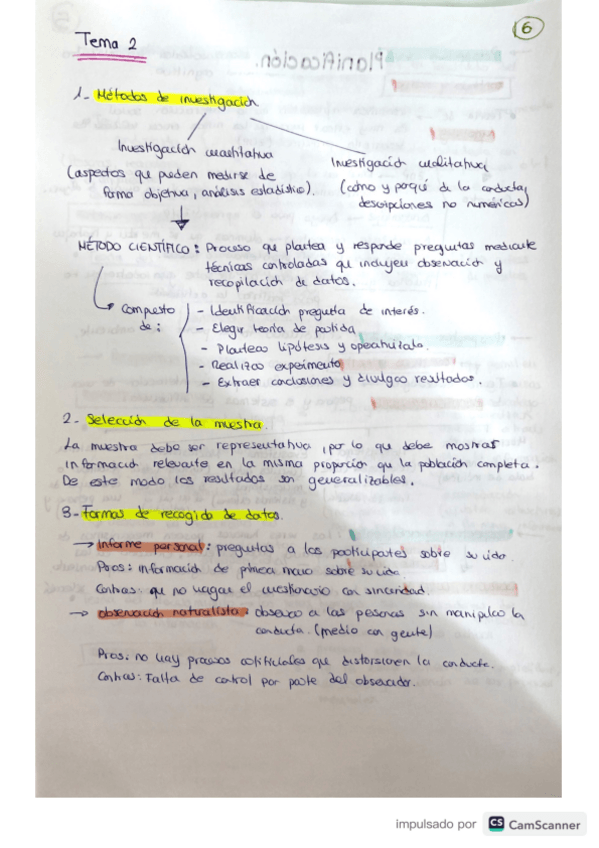 6
Tema 2
Planificación.
1- Métodos de investigación
Investigación cuantitativa
(aspectos que pueden medirse de
forma objetiva, análisis estadístico).
Investigación cualitativa
(cómo y porqué de la conducta,
descripciones no numéricas)
MÉTODO CIENTÍFICO: Proceso que plantea y responde preguntas mediante
técnicas controladas que incluyen observación y
recopilación de datos.
Compuesto
de:
- Identificación pregunta de interés.
- Elegir teoría de partida
- Plantear hipótesis y operativizarla.
- Realizar experimento
- Extraer conclusiones y divulgar resultados.
2- Selección de la muestra.
La muestra debe ser representativa, por lo que debe mostrar
información relevante en la misma proporción que la población completa.
De este modo los resultados son generalizables.
3- Formas de recogida de datos.
→ Informe personal: preguntas a los participantes sobre su vida.
Pros: información de primera mano sobre su vida.
Contras: que no hagan el cuestionario con sinceridad.
→ observación naturalista: observo a las personas sin manipular la
conducta. (medio con gente)
Pros: no hay procesos artificiales que distorsionen la conducta.
Contras: Falta de control por parte del observador.
impulsado por CS CamScanner